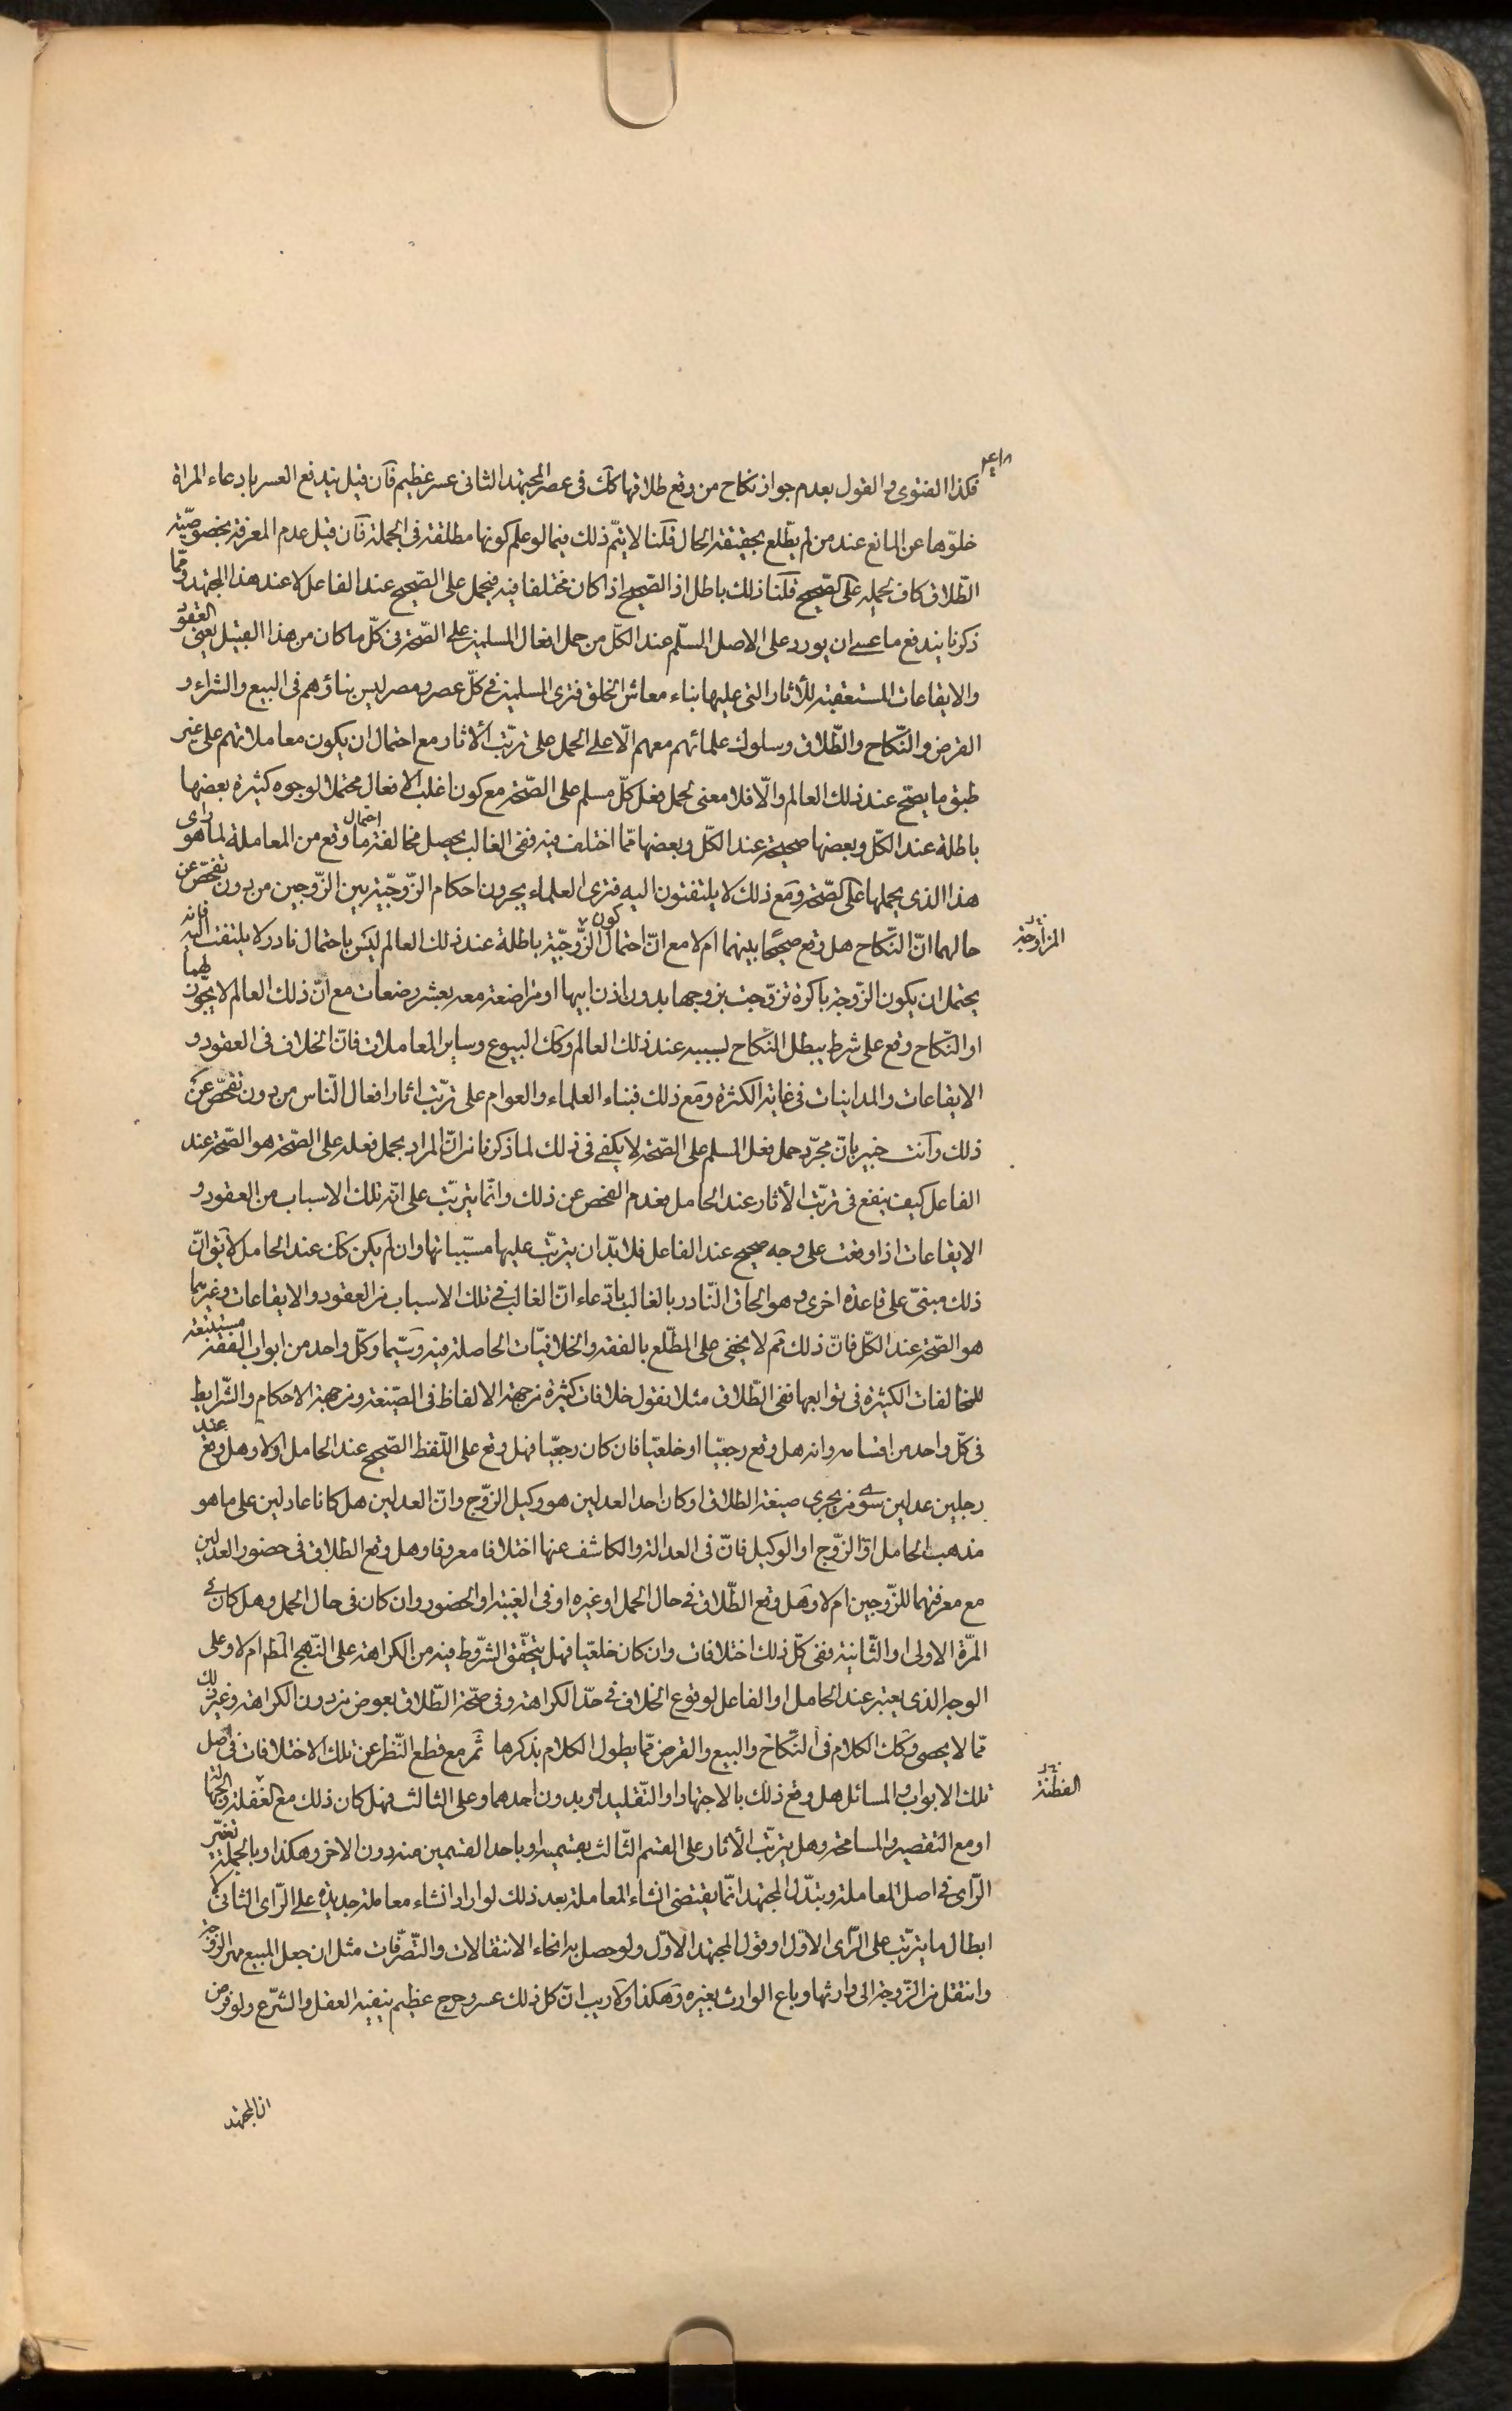 فكذا الفتوى والقول بعدم جواز نكاح من وقع طلاقها كك فى عصر المجتهد الثانى عسر عظيم فان قيل يندفع العسر بادعاء المراة
خلوّها عن المانع عند من لم يطّلع بحقيقة الحال قلنا لا يتمّ ذلك فيما لو علم كونها مطلقة فى الجملة فان قيل عدم المعرفة بخصوصيّة
الطّلاق كاف لحمله على الصّحيح قلنا ذلك باطل اذ الصّحيح اذا كان مختلفا فيه فيحمل على الصّحيح عند الفاعل لا عند هذا المجتهد وممّا
ذكرنا يندفع ما عسى ان يورد على الاصل المسلّم عند الكلّ من حمل افعال المسلمين على الصّحة فى كلّ ما كان من هذا القبيل يعنى العقود
والايقاعات المستعقبة للأثار التى عليها بناء معاش الخلق فترى المسلمين فى كلّ عصر ومصر ليس بناؤهم فى البيع والشراء و
القرض والنّكاح والطّلاق وسلوك علمائهم معهم الّا على الحمل على ترتّب الأثار مع احتمال ان يكون معاملاتهم على غير
طبق ما يصحّ عند ذلك العالم والّا فلا معنى لحمل فعل كلّ مسلم على الصّحة مع كون اغلب الافعال محتملا لوجوه كثيرة بعضها
باطلة عند الكلّ وبعضها صحيحة عند الكلّ وبعضها ممّا اختلف فيه ففى الغالب يحصل احتمال مخالفة ما وقع من المعاملة لما هو راى
هذا الذى يحملها على الصّحة ومع ذلك لا يلتفتون اليه فترى العلماء يجرون احكام الزّوجيّة بين الزّوجين من دون تفحّص عن
حالهما انّ النّكاح هل وقع صحيحًا بينهما ام لا مع انّ احتمال كون الزّوجيّة باطلة عند ذلك العالم ليس باحتمال نادر لا يلتفت اليه فانه
المزاوجة
يحتمل ان يكون الزّوجة باكرة تزوّجت بزوجها بدون اذن ابيها او مراضعة معه بعشر رضعات مع انّ ذلك العالم لا يجوّز لهما
او النّكاح وقع على شرط يبطل النّكاح بسببه عند ذلك العالم وكك البيوع وساير المعاملات فانّ الخلاف فى العقود و
الايقاعات والمداينات فى غاية الكثرة ومع ذلك فبناء العلماء والعوام على ترتّب اثار افعال النّاس من دون تفحّص عن
ذلك وانت خبير بانّ مجرّد حمل فعل المسلم على الصّحة لا يكفى فى ذلك لما ذكرنا من انّ المراد بحمل فعله على الصّحة هو الصّحة عند
الفاعل كيف ينفع فى ترتّب الأثار عند الحامل فعدم الفحص عن ذلك وانّما يترتّب على انّ تلك الاسباب من العقود و
الايقاعات اذا وقعت على وجه صحيح عند الفاعل فلا بدّ ان يترتّب عليها مسبّباتها وان لم يكن كك عند الحامل لا يقوانّ
ذلك مبنىّ على قاعدة اخرى وهو الحاق النّادر بالغالب بادّعاء انّ الغالب فى تلك الاسباب من العقود والايقاعات وغيرهما
هو الصّحة عند الكلّ فانّ ذلك ثم لا يخفى على المطّلع بالفقه والخلافيّات الحاصلة فيه وسيّما وكلّ واحد من ابواب الفقه مستتبعة
للمخالفات الكثيرة فى توابعها ففى الطّلاق مثلا نقول خلافات كثيرة من جهة الالفاظ فى الصّيغة ومن جهة الاحكام والشّرايط
فى كلّ واحد من اقسامه وانه هل وقع رجعيّا او خلعيّا فان كان رجعيّا فهل وقع على اللّفظ الصّحيح عند الحامل اولا وهل وقع عند
رجلين عدلين سوى من يجرى صيغة الطلاق او كان احد العدلين هو وكيل الزّوج وانّ العدلين هل كانا عادلين على ما هو
مذهب الحامل او الزّوج او الوكيل فانّ فى العدالة والكاشف عنها اختلافا معروفا وهل وقع الطلاق فى حضور العدلين
مع معرفتهما للزّوجين ام لا وهل وقع الطّلاق فى حال الحمل او غيره او فى الغيبة او الحضور وان كان فى حال الحمل وهل كان فى
المرّة الاولى او الثّانية ففى كلّ ذلك اختلافات وان كان خلعيّا فهل يتحقّق الشّروط فيه من الكراهة على النّهج المط ام لا وعلى
الوجه الذى يعتبر عند الحامل او الفاعل لوقوع الخلاف فى حدّ الكراهة وفى صحّة الطّلاق بعوض من دون الكراهة وغير ذلك
ممّا لا يحصى وكك الكلام فى النّكاح والبيع والقرض ممّا يطول الكلام بذكرها ثم مع قطع النّظر عن تلك الاختلافات فى اصل
تلك الابواب والمسائل هل وقع ذلك بالاجتهاد او التّقليد او بدون احدهما وعلى الثالث فهل كان ذلك مع الغفلة والجهالة
الفطنة
او مع التقصير والمسامحة وهل يترتّب الأثار على القسم الثّالث بقسميه او باحد القسمين من دون الاخر وهكذا وبالجملة تغيّر
الرّاى فى اصل المعاملة وتبدّل المجتهد انّما يقتضى انشاء المعاملة بعد ذلك لو اراد انشاء معاملة جديدة على الرّاى الثانى لا
ابطال ما يترتّب على الرّاى الاوّل او قول المجتهد الاوّل ولو حصل به انحاء الانتقالات والتّصرّفات مثل ان جعل المبيع مهر الزّوجة
وانتقل من الزّوجة الى وارثها وباع الوارث بغيره وهكذا ولا ريب انّ كل ذلك عسر وحرج عظيم ينفيه العقل والشّرع ولو فرض
انا المجتهد